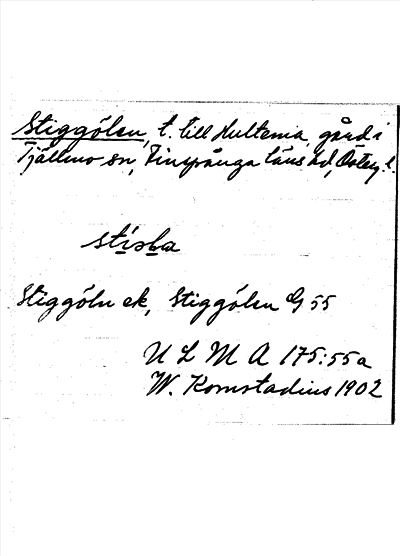 Stiggölen, t. till Hultemia, gård i
Tjällmo sn, Finspånga läns hd, Östergl.
Stiggöln ek, Stiggölen G 55
U L M A 175:55a
W. Komstadius 1902